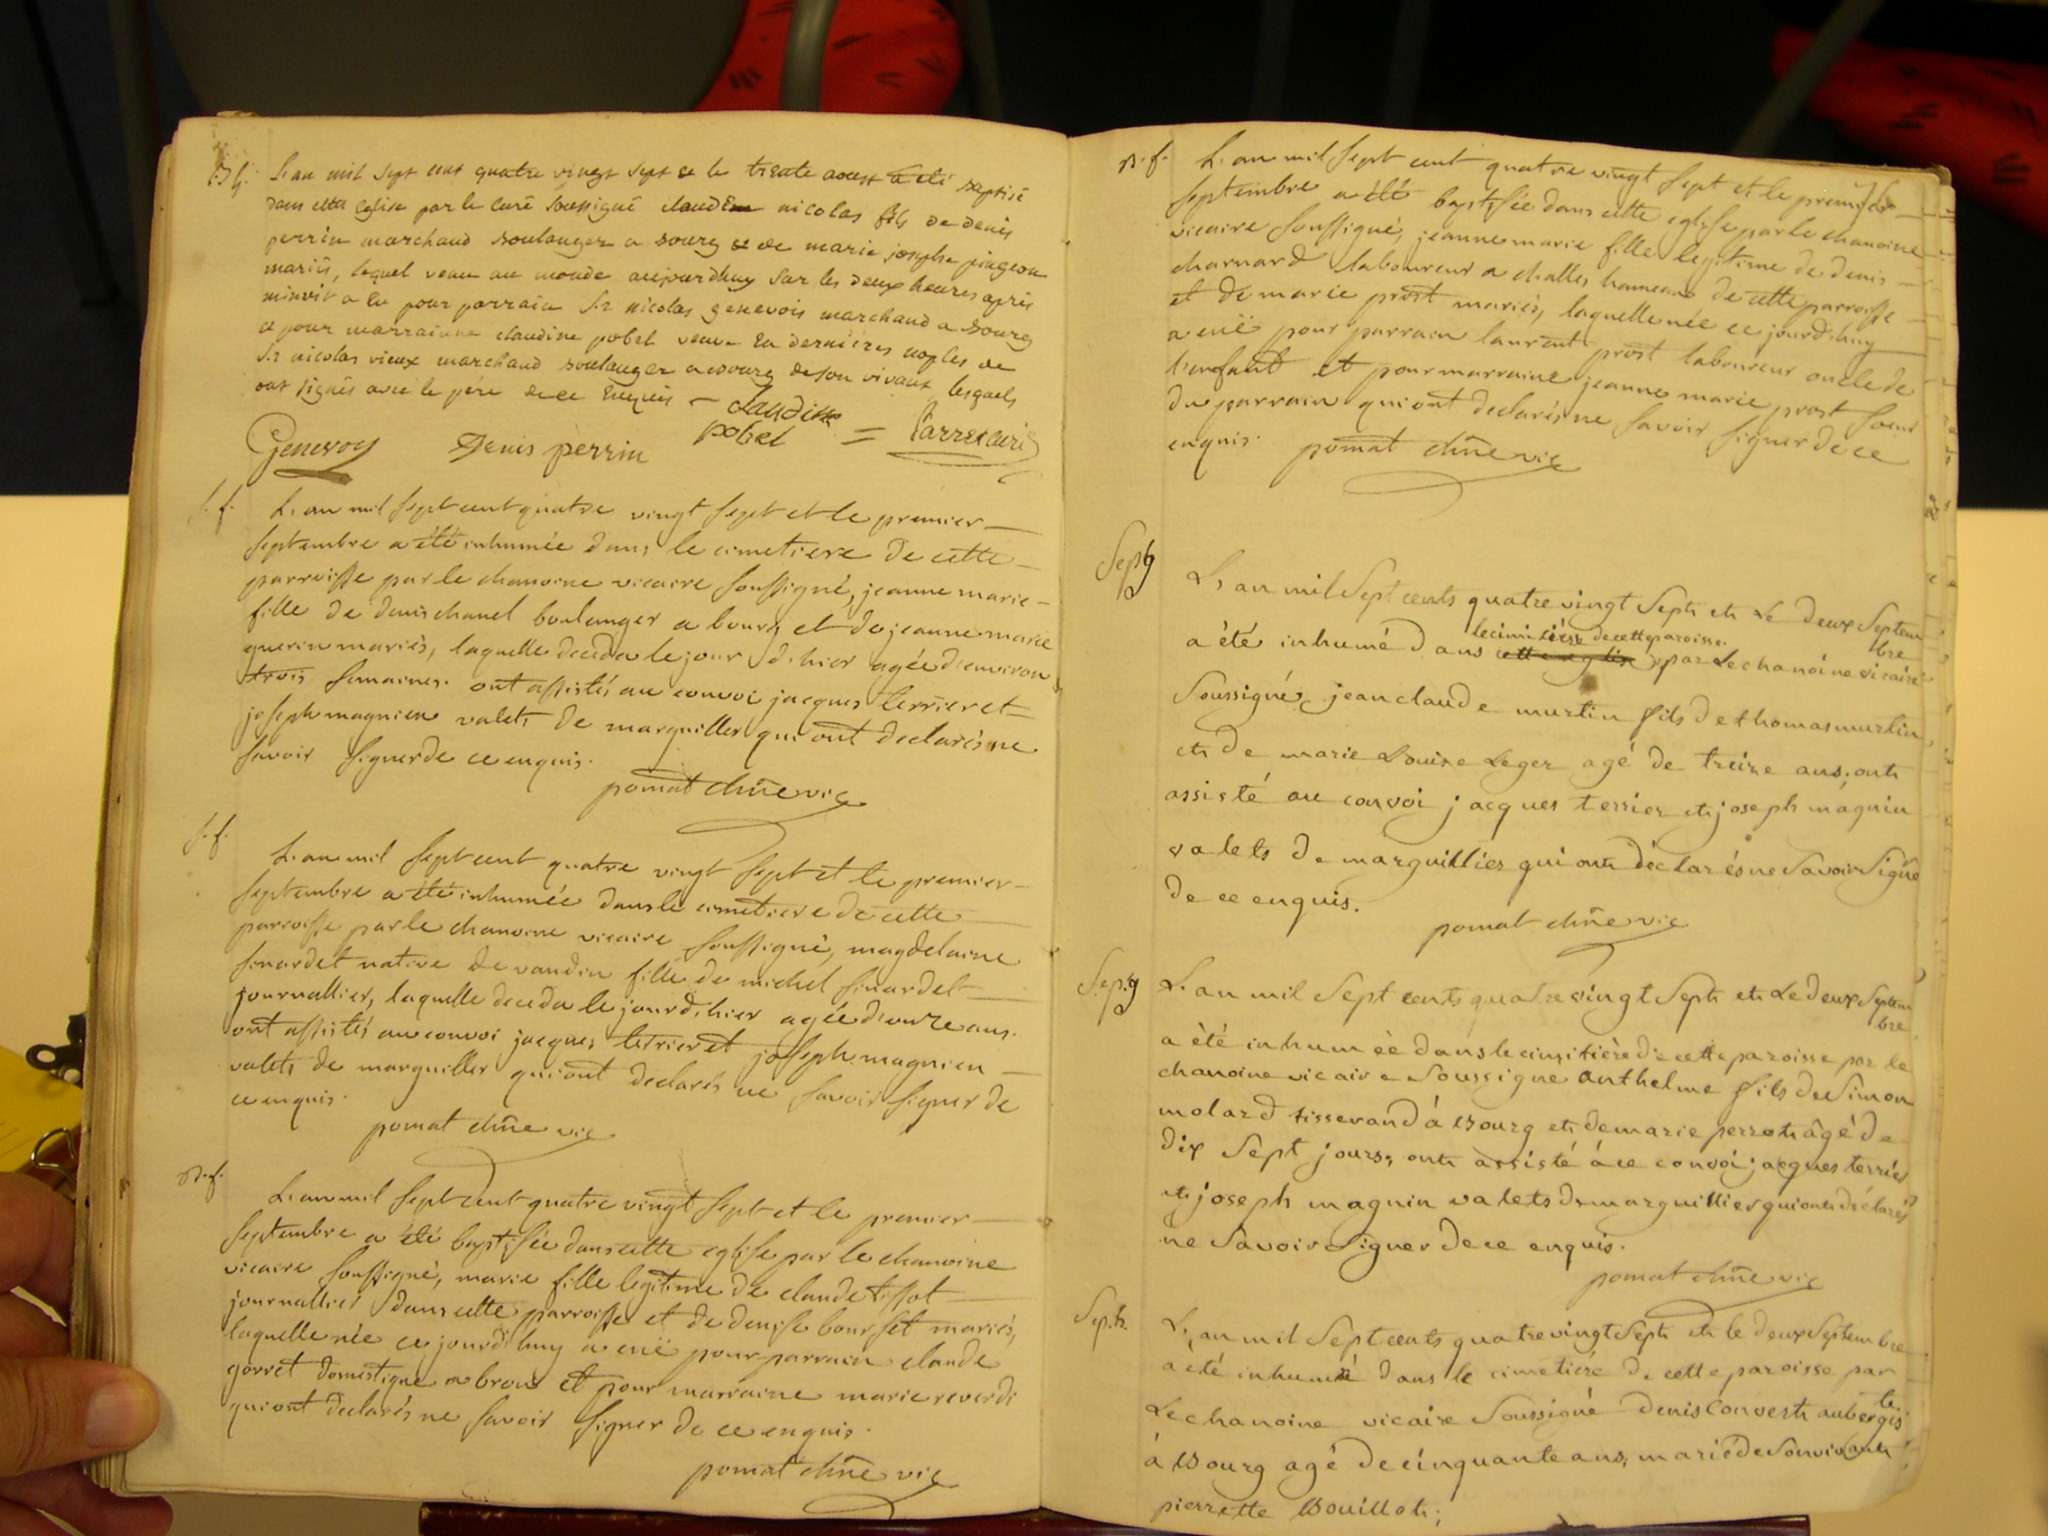 B.g. L'an mil sept cent quatre vingt sept et le trente aoust a eté baptisé
dans cette eglise par le curé soussigné claude nicolas fils de denis
perrin marchand boulanger a bourg et de marie josephe pingeon
mariés, lequel venu au monde aujourdhuy sur les deux heures après
minuit a eu pour parrain Sr nicolas genevois marchand a bourg
et pour marrainne claudine pobel veuve en dernières noples de
Sr nicolas vieux marchand boulanger a bourg de son vivant lesquels
ont signés avec le père de ce enquis – claudine
Genevoy Denis perrin pobel = Parrex curé
s.f. L'an mil sept cent quatre vingt sept et le premier
septembre a été inhumée dans le cimetiere de cette
parroisse par le chanoine vicaire soussigné, jeanne marie
fille de denis chanel boulanger a bourg et de jeanne marie
guerin mariés, laquelle deceda le jour d'hier agée d'environ
trois semaines. ont assistés au convoi jacques terrier et
joseph magnien valets de marguiller qui ont declarés ne
savoir signer de ce enquis.
pomat chñe vic
s.f. L'an mil sept cent quatre vingt sept et le premier
septembre a été inhumée dans le cimetiere de cette
parroisse par le chanoine vicaire soussigné, magdelaine
sinardet native de vandin fille de michel sinardet
journallier, laquelle deceda le jour d'hier agée d'onze ans.
ont assistés au convoi jacques terrier et joseph magnien
valets de marguiller qui ont declarés ne savoir signer de
ce enquis.
pomat chñe vic
B.f. L'an mil sept cent quatre vingt sept et le premier
septembre a été baptisée dans cette eglise par le chanoine
vicaire soussigné, marie fille legitime de claude tissot
journallier dans cette parroisse et de denise bourset mariés,
laquelle née ce jourd'huy a euë pour parrain claude
gorret domestique a brou et pour marraine marie reverdi
qui ont declarés ne savoir signer de ce enquis.
pomat chñe vic
B.f. L'an mil sept cent quatre vingt sept et le premier
septembre a été baptisée dans cette eglise par le chanoine
vicaire soussigné, jeanne marie fille legitime de denis
charnard laboureur a challes hameau de cette parroisse
et de marie prost mariés, laquelle née ce jourd'huy
a euë pour parrain laurent prost laboureur oncle de
l'enfant et pour marraine jeanne marie prost soeur
du parrain qui ont declarés ne savoir signer de ce
enquis. pomat chñe vic
Sep.g L'an mil Sept cents quatre vingt Sept et Le deux Septem
bre
le cimitière de cette paroisse
a été inhumé dans cette eglise par Le chanoine vicaire
Soussigné jean claude murtin fils de thomas murtin
et de marie Louise Leger agé de treize ans, ont
assisté au convoi jacques terrier et joseph magnin
valets de marguillier qui ont déclarés ne Savoir Signé
de ce enquis.
pomat chñe vic
Sep.g L'an mil Sept cents quatre vingt Sept et Le deux Septem
bre
a été inhumèè dans le cimitière de cette paroisse par le
chanoine vicaire Soussigne anthelme fils de Simon
molard tisserand á Bourg et de marie perret âgé de
dix Sept jours, ont assisté á ce convoi jacques terrier
et joseph magnin valets de marguillier qui ont déclarés
ne Savoir Signer de ce enquis.
pomat chñe vic
Sep.h. L'an mil Sept cents quatre vingt Sept et le deux Septembre
a été inhumé dans le cimetiére de cette paroisse par
Le chanoine vicaire Soussigné denis Convert aubergis
te
á Bourg agé de cinquante ans, marié de Son vivant
pierrette Bouillet;